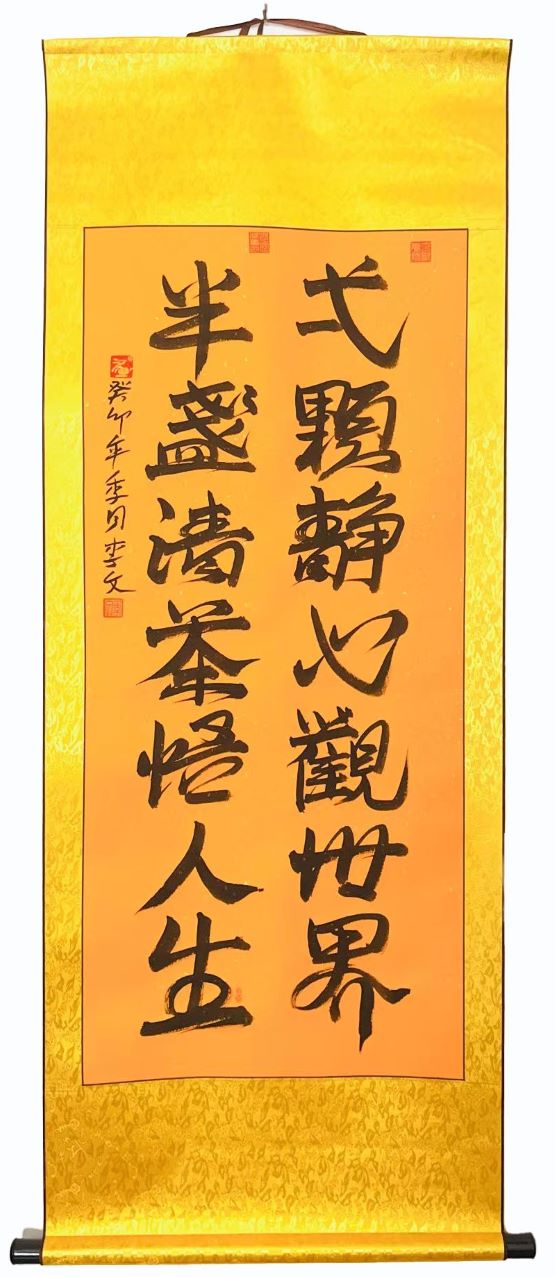 弌顆静心觀世界
半盞清茶悟人生
癸卯年季月李文